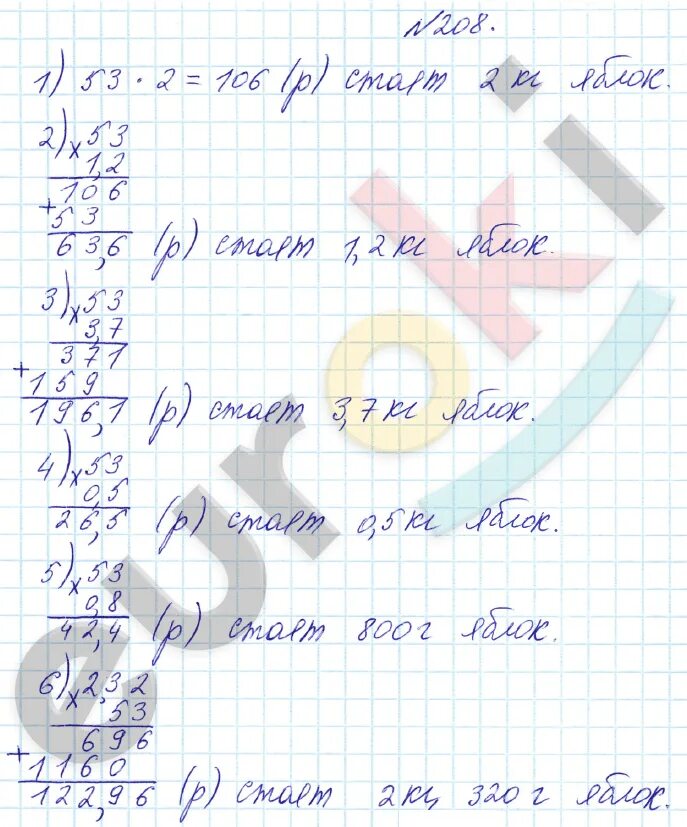 №208.
1) 53 · 2 = 106 (р) стоит 2 кг яблок.
2) × 53
1,2
106
+ 53
63,6 (р) стоит 1,2 кг яблок.
3) × 53
3,7
371
+ 159
196,1 (р) стоит 3,7 кг яблок.
4) × 53
0,5
26,5 (р) стоит 0,5 кг яблок.
5) × 53
0,8
42,4 (р) стоит 800 г яблок.
6) × 2,32
53
696
+ 1160
122,96 (р) стоит 2 кг 320 г яблок.
euroki